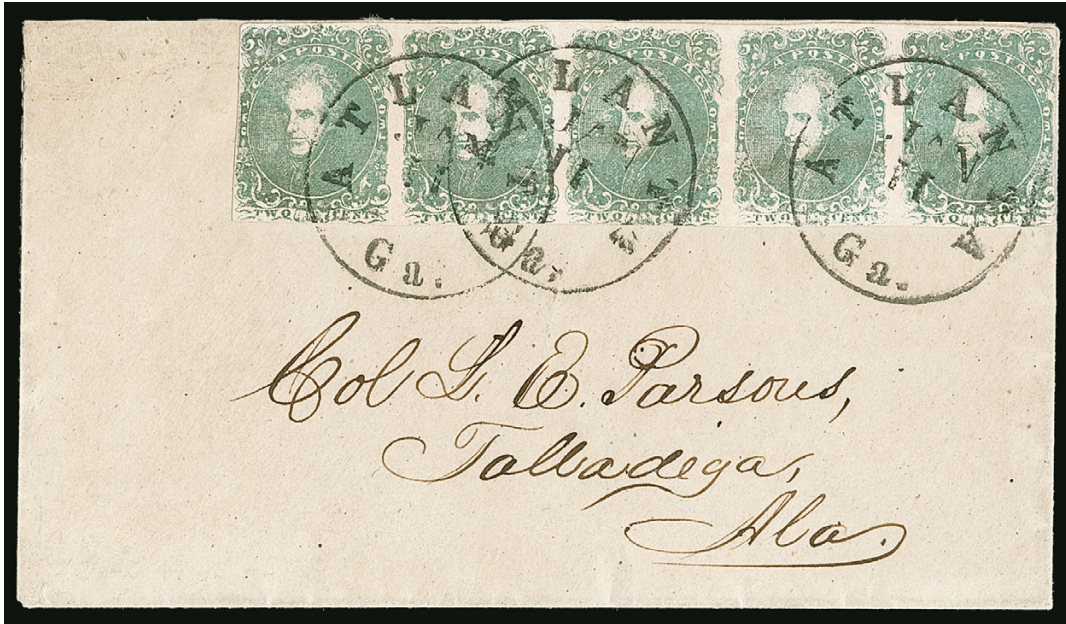 C.S.A POSTAGE
TWO CENTS
C.S.A POSTAGE
TWO CENTS
C.S.A POSTAGE
TWO CENTS
C.S.A POSTAGE
TWO CENTS
C.S.A POSTAGE
TWO CENTS
ATLANTA
Ga.
ATLANTA
Ga.
ATLANTA
Ga.
Col L. E. Parsons,
Talladega,
Ala.